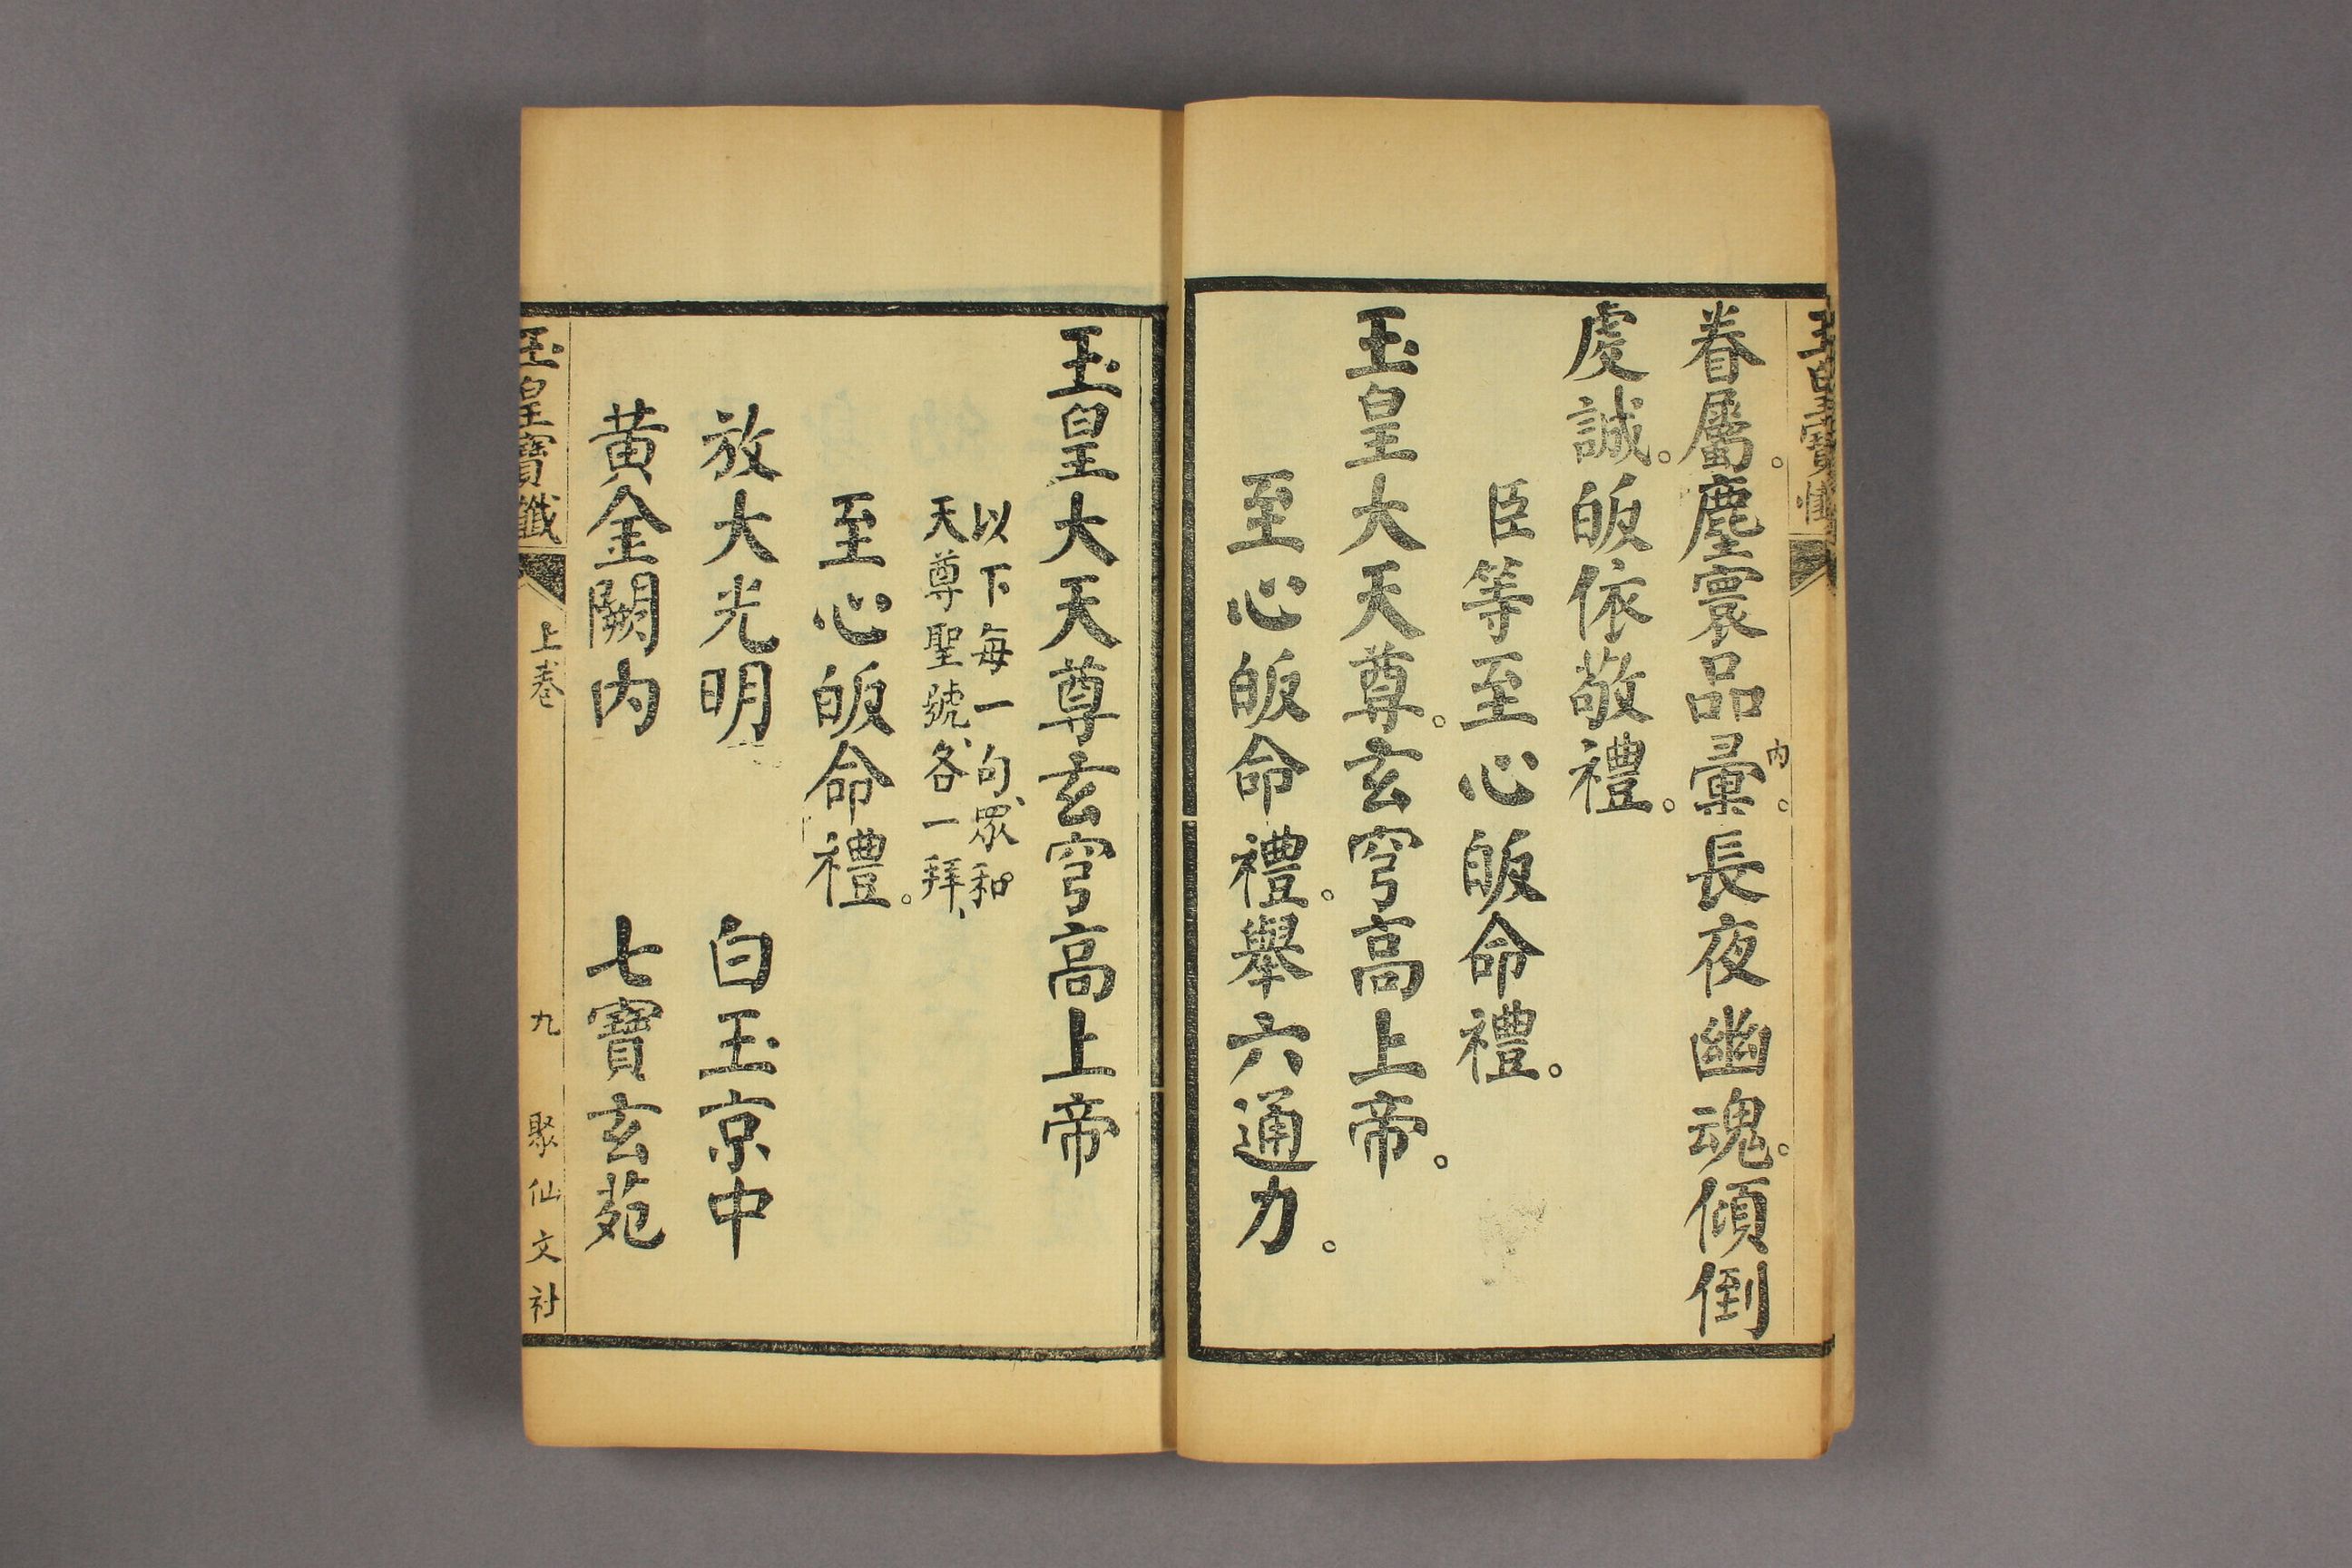 玉皇寶懺
眷屬。塵寰品彙。內長夜幽魂。傾倒
虔誠。皈依敬禮。
臣等至心皈命禮。
玉皇大天尊。玄穹高上帝。
至心皈命禮。舉六通力。
玉皇大天尊玄穹高上帝
以下每一句、眾和。
天尊聖號、各一拜、
至心皈命禮。
放大光明 白玉京中
黃金闕內 七寶玄苑
玉皇寶懺 上卷 九 聚仙文社